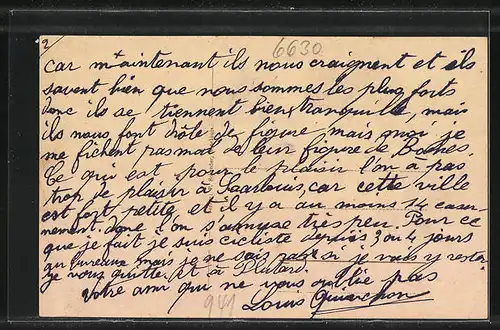 2
6630
car maintenant ils nous craignent et ils
savent bien que nous sommes les plus forts
donc ils se tiennent bien tranquille, mais
ils nous font drôle de figure, mais moi je
me fichent pas mal de leur figure de Boches.
Ce qui est pour le plaisir l'on a pas
trop de plaisir à Saarlouis, car cette ville
est fort petite et il y a au moins 14 caser-
nement. donc l'on s'amuse très peu. Pour ce
que je fait je suis cicliste depuis 3 ou 4 jours
au bureaux mais je ne sais pas si je vais y rester
je vous quitte et à Plutard.
Votre ami qui ne vous oublie pas
Louis
941